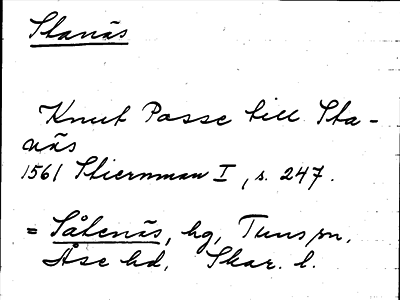 Stanäs
Knut Posse till Sta-
näs
1561 Stiernman I, s. 247.
= Såtenäs, hg, Tuns sn,
Åse hd, Skar. l.